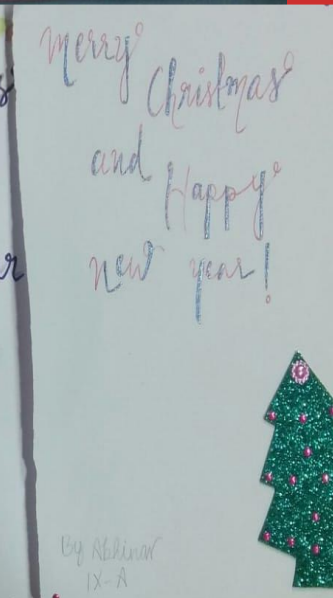 Merry
Christmas
and
Happy
new year!
By Abhinav
IX-A